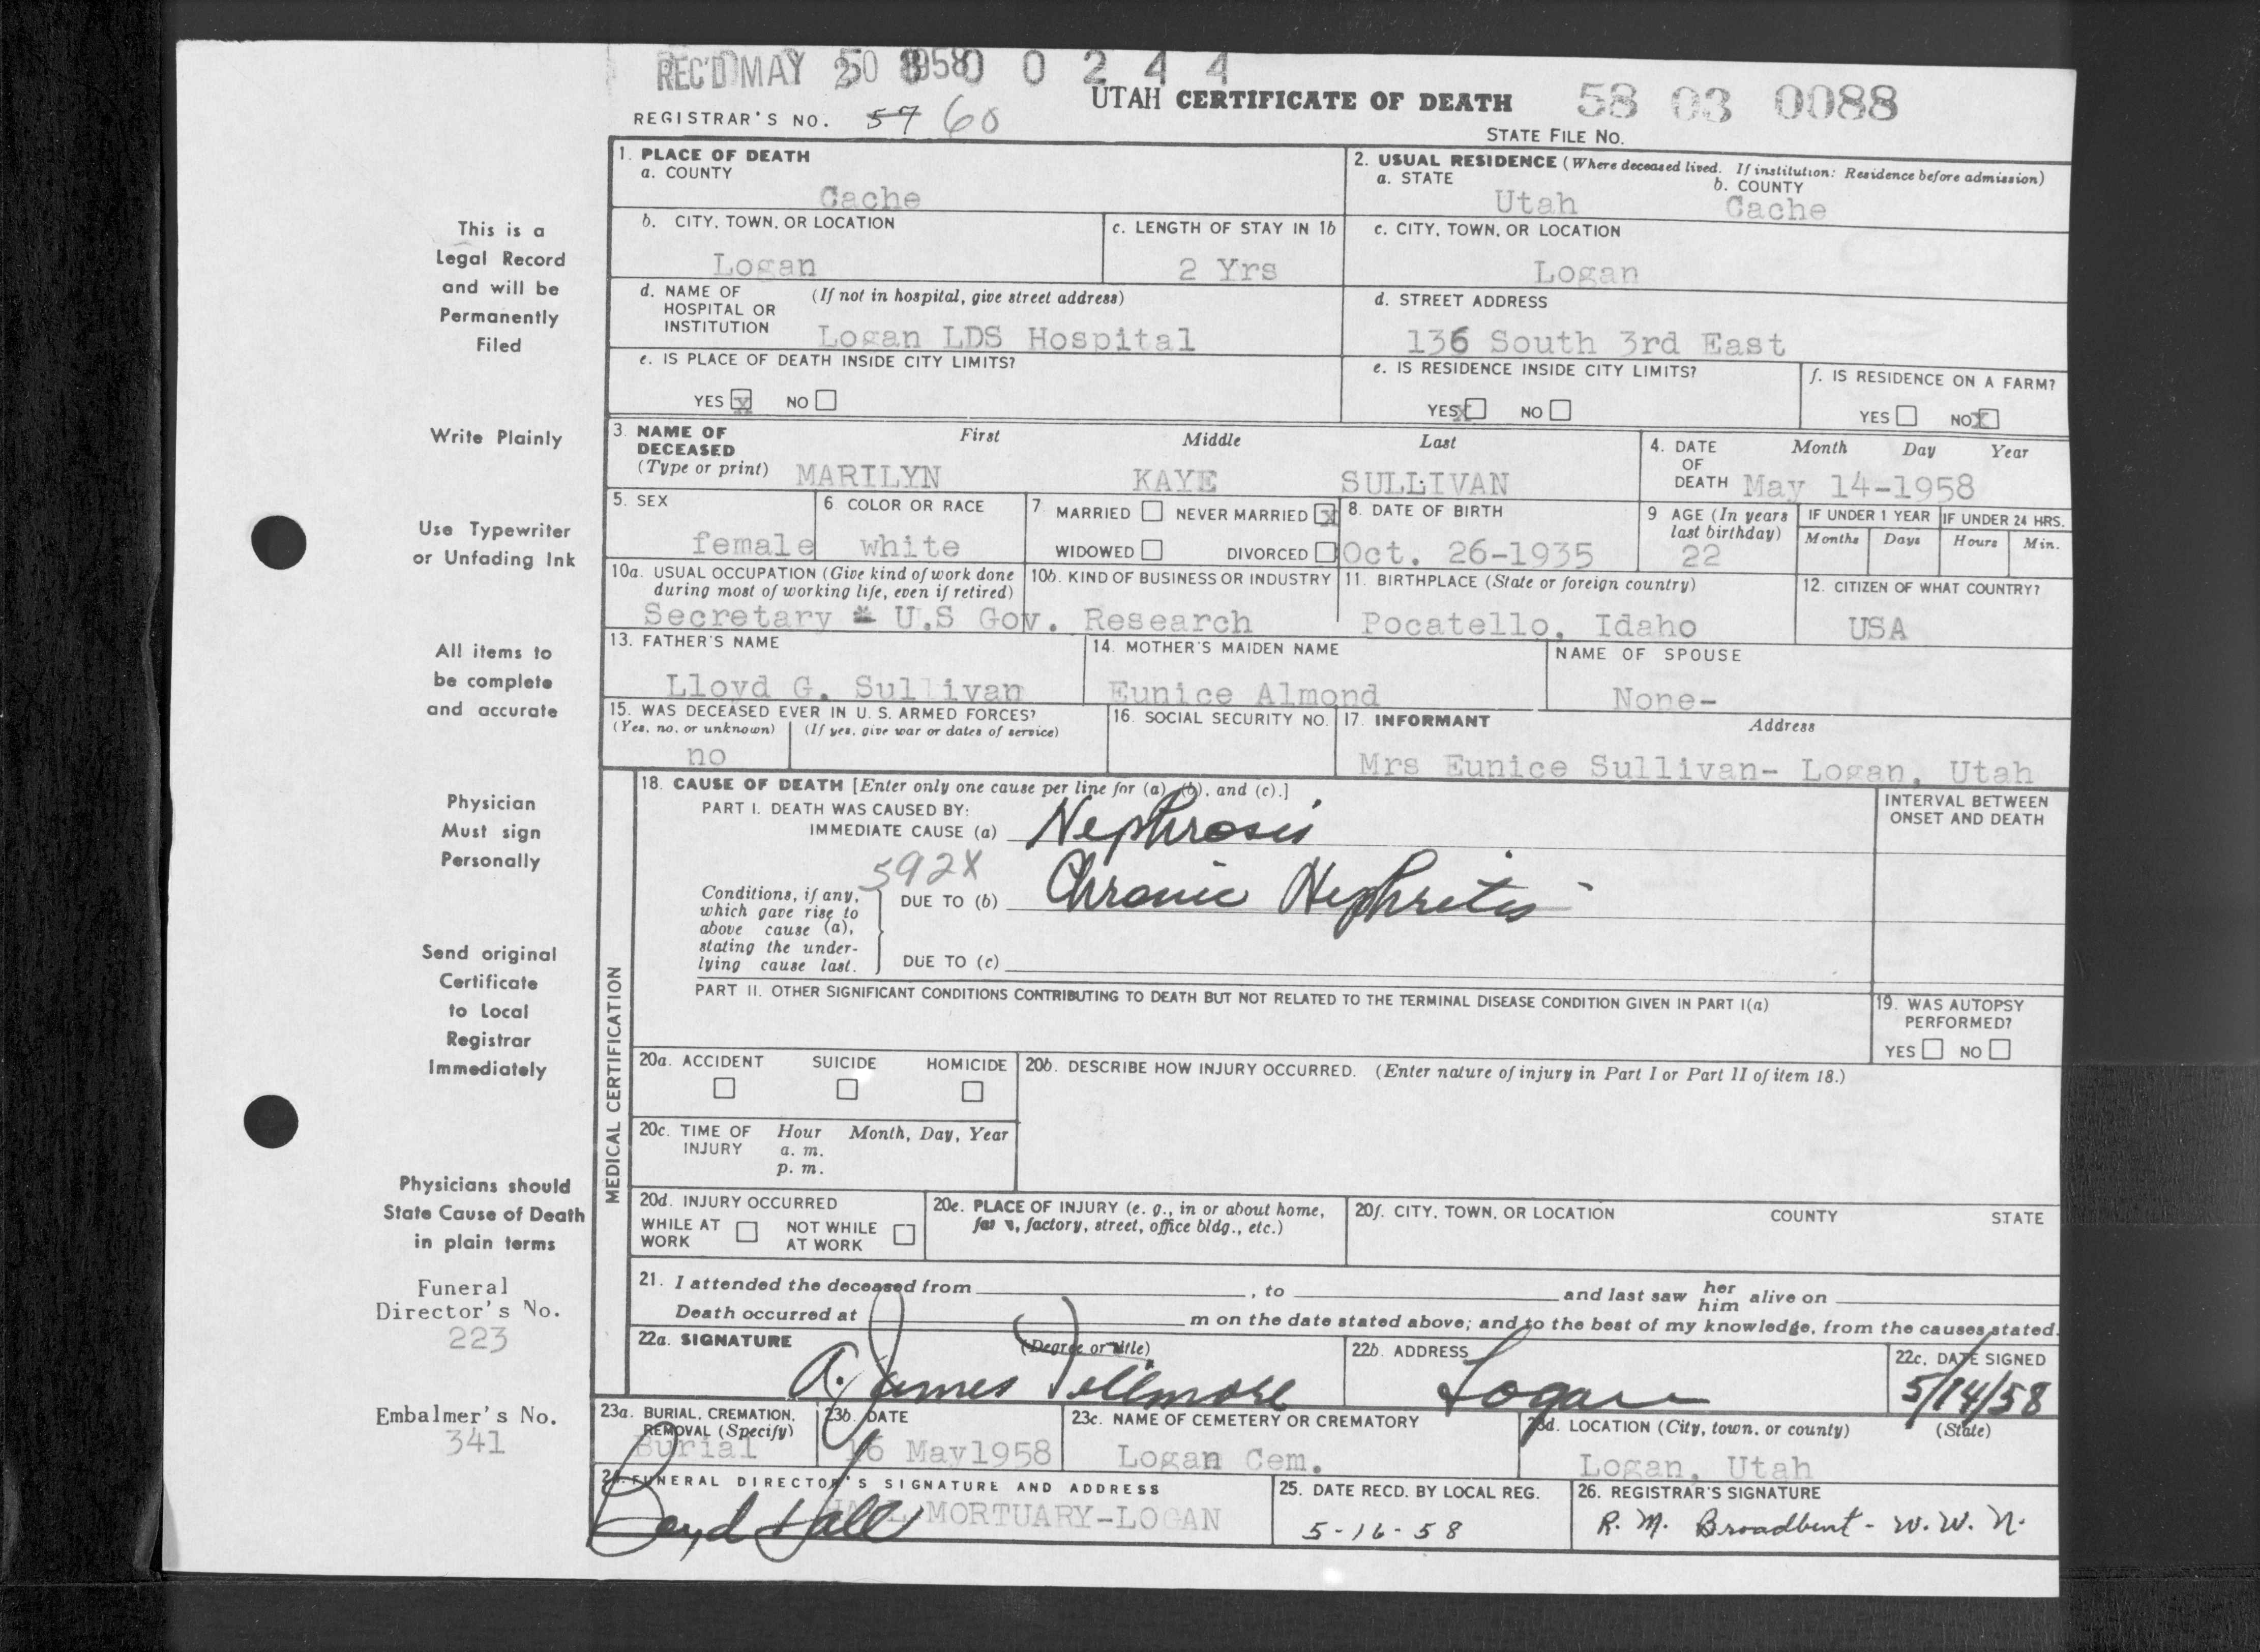 REC'D MAY 20 1958 0 0 2 4 4
UTAH CERTIFICATE OF DEATH
58 03 0088
REGISTRAR'S NO. 57 60
STATE FILE NO.
This is a
Legal Record
and will be
Permanently
Filed
Write Plainly
Use Typewriter
or Unfading Ink
All items to
be complete
and accurate
Physician
Must sign
Personally
Send original
Certificate
to Local
Registrar
Immediately
Physicians should
State Cause of Death
in plain terms
Funeral
Director's No.
223
Embalmer's No.
341
1. PLACE OF DEATH
a. COUNTY
Cache
2. USUAL RESIDENCE (Where deceased lived. If institution: Residence before admission)
a. STATE
Utah
b. COUNTY
Cache
b. CITY, TOWN, OR LOCATION
Logan
c. LENGTH OF STAY IN 1b
2 Yrs
c. CITY, TOWN, OR LOCATION
Logan
d. NAME OF HOSPITAL OR INSTITUTION
(If not in hospital, give street address)
Logan LDS Hospital
d. STREET ADDRESS
136 South 3rd East
e. IS PLACE OF DEATH INSIDE CITY LIMITS?
YES X NO
e. IS RESIDENCE INSIDE CITY LIMITS?
YES X NO
f. IS RESIDENCE ON A FARM?
YES NO X
3. NAME OF DECEASED
(Type or print)
First Middle Last
MARILYN KAYE SULLIVAN
4. DATE OF DEATH
Month Day Year
May 14-1958
5. SEX
female
6. COLOR OR RACE
white
7. MARRIED NEVER MARRIED X
WIDOWED DIVORCED
8. DATE OF BIRTH
Oct. 26-1935
9. AGE (In years last birthday)
22
IF UNDER 1 YEAR
Months Days
IF UNDER 24 HRS.
Hours Min.
10a. USUAL OCCUPATION (Give kind of work done during most of working life, even if retired)
10b. KIND OF BUSINESS OR INDUSTRY
Secretary - U.S Gov. Research
11. BIRTHPLACE (State or foreign country)
Pocatello, Idaho
12. CITIZEN OF WHAT COUNTRY?
USA
13. FATHER'S NAME
Lloyd G. Sullivan
14. MOTHER'S MAIDEN NAME
Eunice Almond
NAME OF SPOUSE
None-
15. WAS DECEASED EVER IN U. S. ARMED FORCES?
(Yes, no, or unknown) (If yes, give war or dates of service)
no
16. SOCIAL SECURITY NO.
17. INFORMANT Address
Mrs Eunice Sullivan- Logan, Utah
MEDICAL CERTIFICATION
18. CAUSE OF DEATH [Enter only one cause per line for (a), (b), and (c).]
PART I. DEATH WAS CAUSED BY:
IMMEDIATE CAUSE (a) Nephrosis
INTERVAL BETWEEN ONSET AND DEATH
592X
Conditions, if any, which gave rise to above cause (a), stating the underlying cause last.
DUE TO (b) Chronic Nephritis
DUE TO (c)
PART II. OTHER SIGNIFICANT CONDITIONS CONTRIBUTING TO DEATH BUT NOT RELATED TO THE TERMINAL DISEASE CONDITION GIVEN IN PART I(a)
19. WAS AUTOPSY PERFORMED?
YES NO
20a. ACCIDENT SUICIDE HOMICIDE
20b. DESCRIBE HOW INJURY OCCURRED. (Enter nature of injury in Part I or Part II of item 18.)
20c. TIME OF INJURY
Hour Month, Day, Year
a. m.
p. m.
20d. INJURY OCCURRED
WHILE AT WORK NOT WHILE AT WORK
20e. PLACE OF INJURY (e. g., in or about home, factory, street, office bldg., etc.)
20f. CITY, TOWN, OR LOCATION COUNTY STATE
21. I attended the deceased from , to and last saw her him alive on
Death occurred at m on the date stated above; and to the best of my knowledge, from the causes stated.
22a. SIGNATURE (Degree or title)
A. James
22b. ADDRESS
Logan
22c. DATE SIGNED
5/14/58
23a. BURIAL, CREMATION, REMOVAL (Specify)
Burial
23b. DATE
16 May1958
23c. NAME OF CEMETERY OR CREMATORY
Logan Cem.
23d. LOCATION (City, town, or county) (State)
Logan, Utah
24. FUNERAL DIRECTOR'S SIGNATURE AND ADDRESS
Boyd Hall
HALL MORTUARY-LOGAN
25. DATE RECD. BY LOCAL REG.
5-16-58
26. REGISTRAR'S SIGNATURE
R. M. Broadbent - W. W. N.